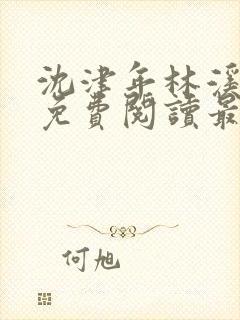 沈津年林溪
免費閱讀最
何旭